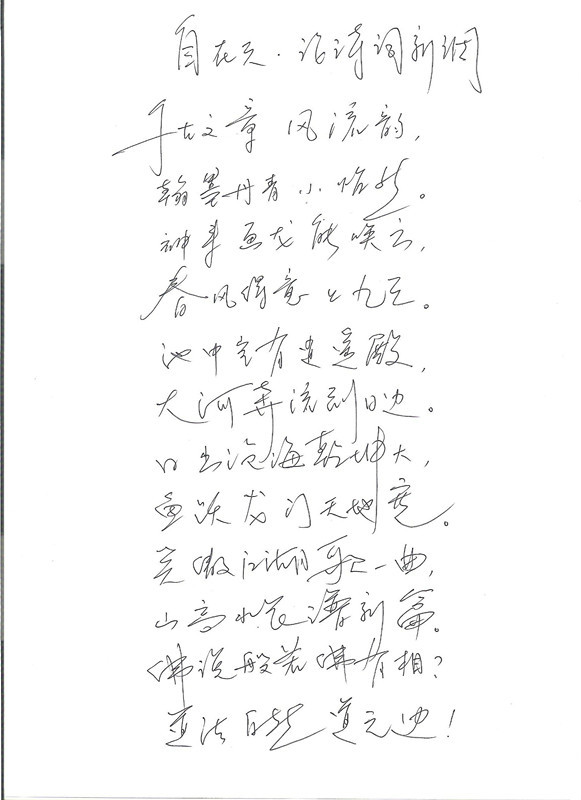 自在天·论诗词新调
千古文章风流韵，
翰墨丹青小怡然。
神来画龙能唤云，
春风得意上九天。
池中定有逍遥殿，
大河奔流到日边。
日出沧海乾坤大，
鱼跃龙门天地宽。
笑傲江湖歌一曲，
山高水长谱新篇。
佛说般若佛有相？
道法自然道无边！